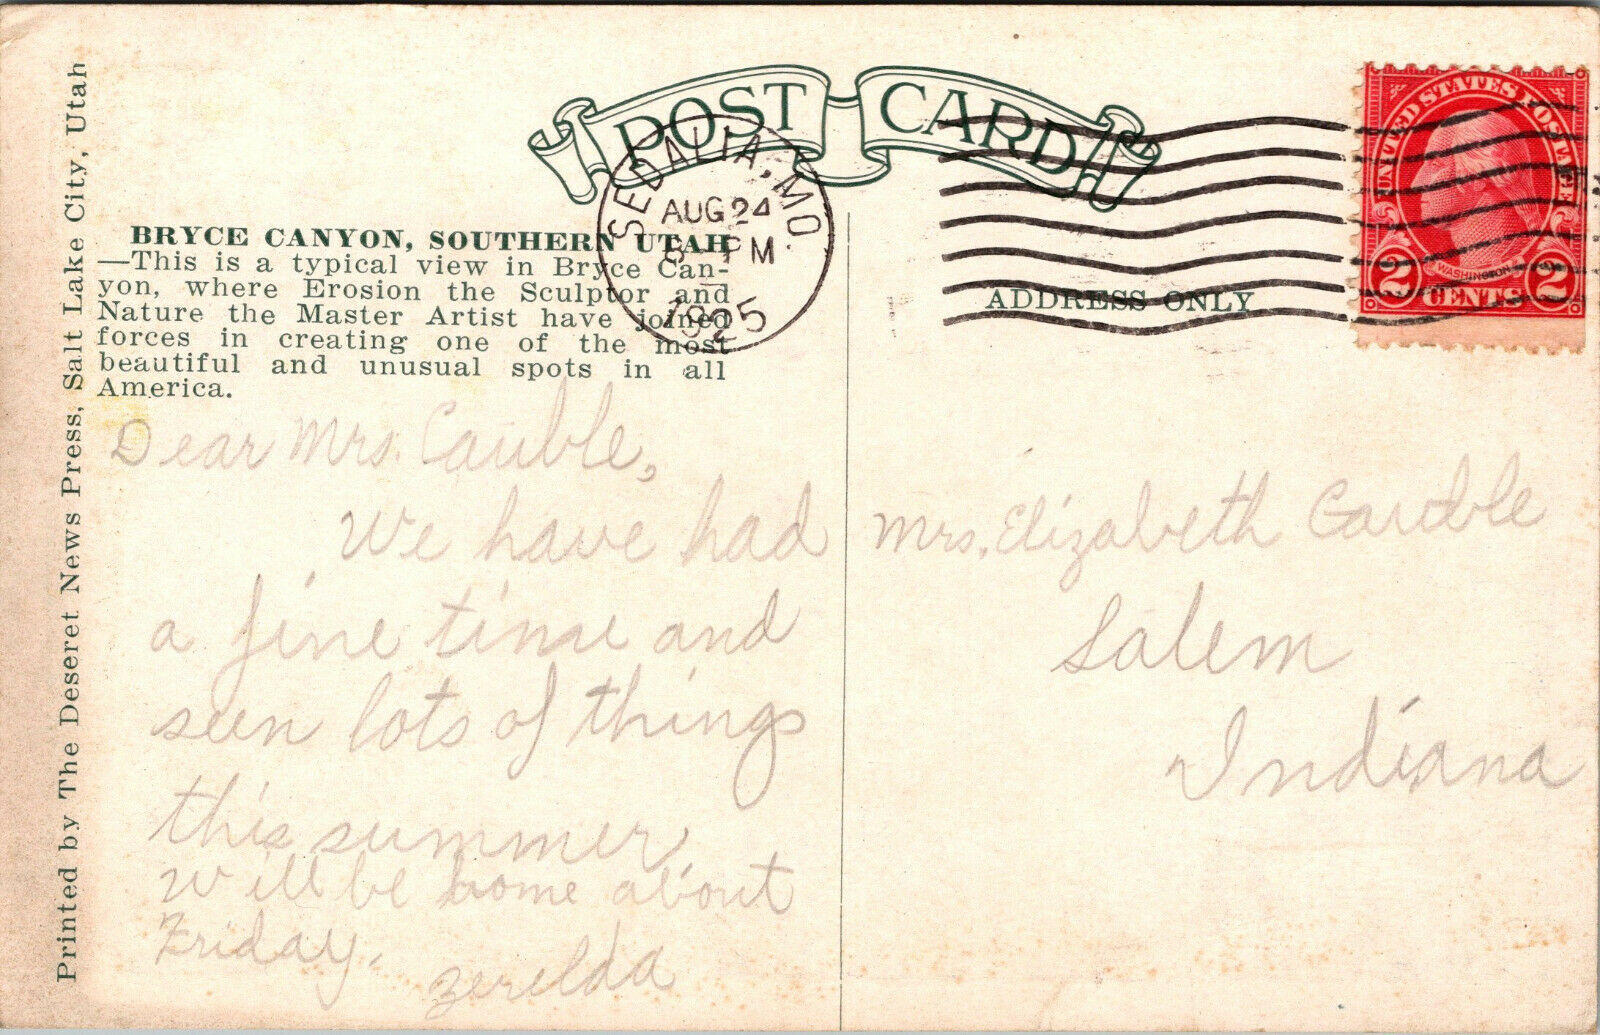 POST CARD
SEDALIA, MO.
AUG 24
PM
1925
UNITED STATES POSTAGE
WASHINGTON
2 CENTS 2
BRYCE CANYON, SOUTHERN UTAH
—This is a typical view in Bryce Can-
yon, where Erosion the Sculptor and
Nature the Master Artist have joined
forces in creating one of the most
beautiful and unusual spots in all
America.
ADDRESS ONLY
Printed by The Deseret News Press, Salt Lake City, Utah
Dear Mrs. Cauble,
We have had
a fine time and
seen lots of things
this summer.
Will be home about
Friday.
Zerelda
Mrs. Elizabeth Cauble
Salem
Indiana